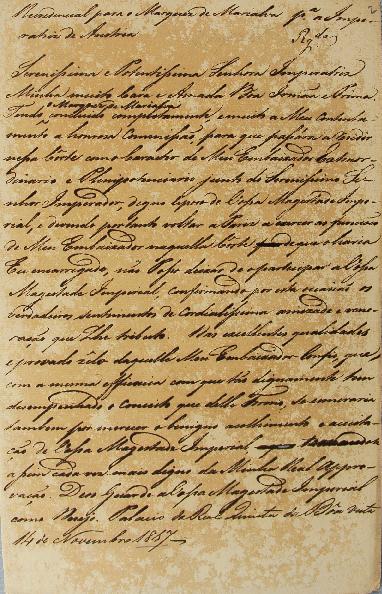 Recredencial para o Marquez de Marialva pª a Impe-
ratriz de Austria
Serenissima e Potentissima Senhora Imperatriz
Minha muito Cara e Amada Boa Irmãa e Prima.
o Marquez de Marialva
Tendo concluido completamente, e muito a Meu contenta-
mento a honrosa Commissão, para que passára a residir
nessa Côrte com o caracter de Meu Embaixador Extraor-
dinario e Plenipotenciario junto do Serenissimo Se-
nhor Imperador, digno Esposo de Vossa Magestade Impe-
rial, e devendo portanto voltar a exercer as funcções
de Meu Embaixador naquella Côrte de que o havia
Eu encarregado, não Posso deixar de o participar a Vossa
Magestade Imperial, confirmando por esta occasião os
verdadeiros sentimentos de cordialissima amizade e vene-
ração que Lhe tributo. Nas excellentes qualidades
e provado zêlo daquelle Meu Embaixador confio, que
com a mesma efficacia com que tão dignamente tem
desempenhado o conceito que delle Formo, se esmeraria
tambem por merecer o benigno acolhimento e aceita-
ção de Vossa Magestade Imperial
mais digno da Minha Real Appro-
vação. Deos Guarde a Vossa Magestade Imperial
como Desejo. Palacio da Real Quinta da Bôa vista
14 de Novembro 1817